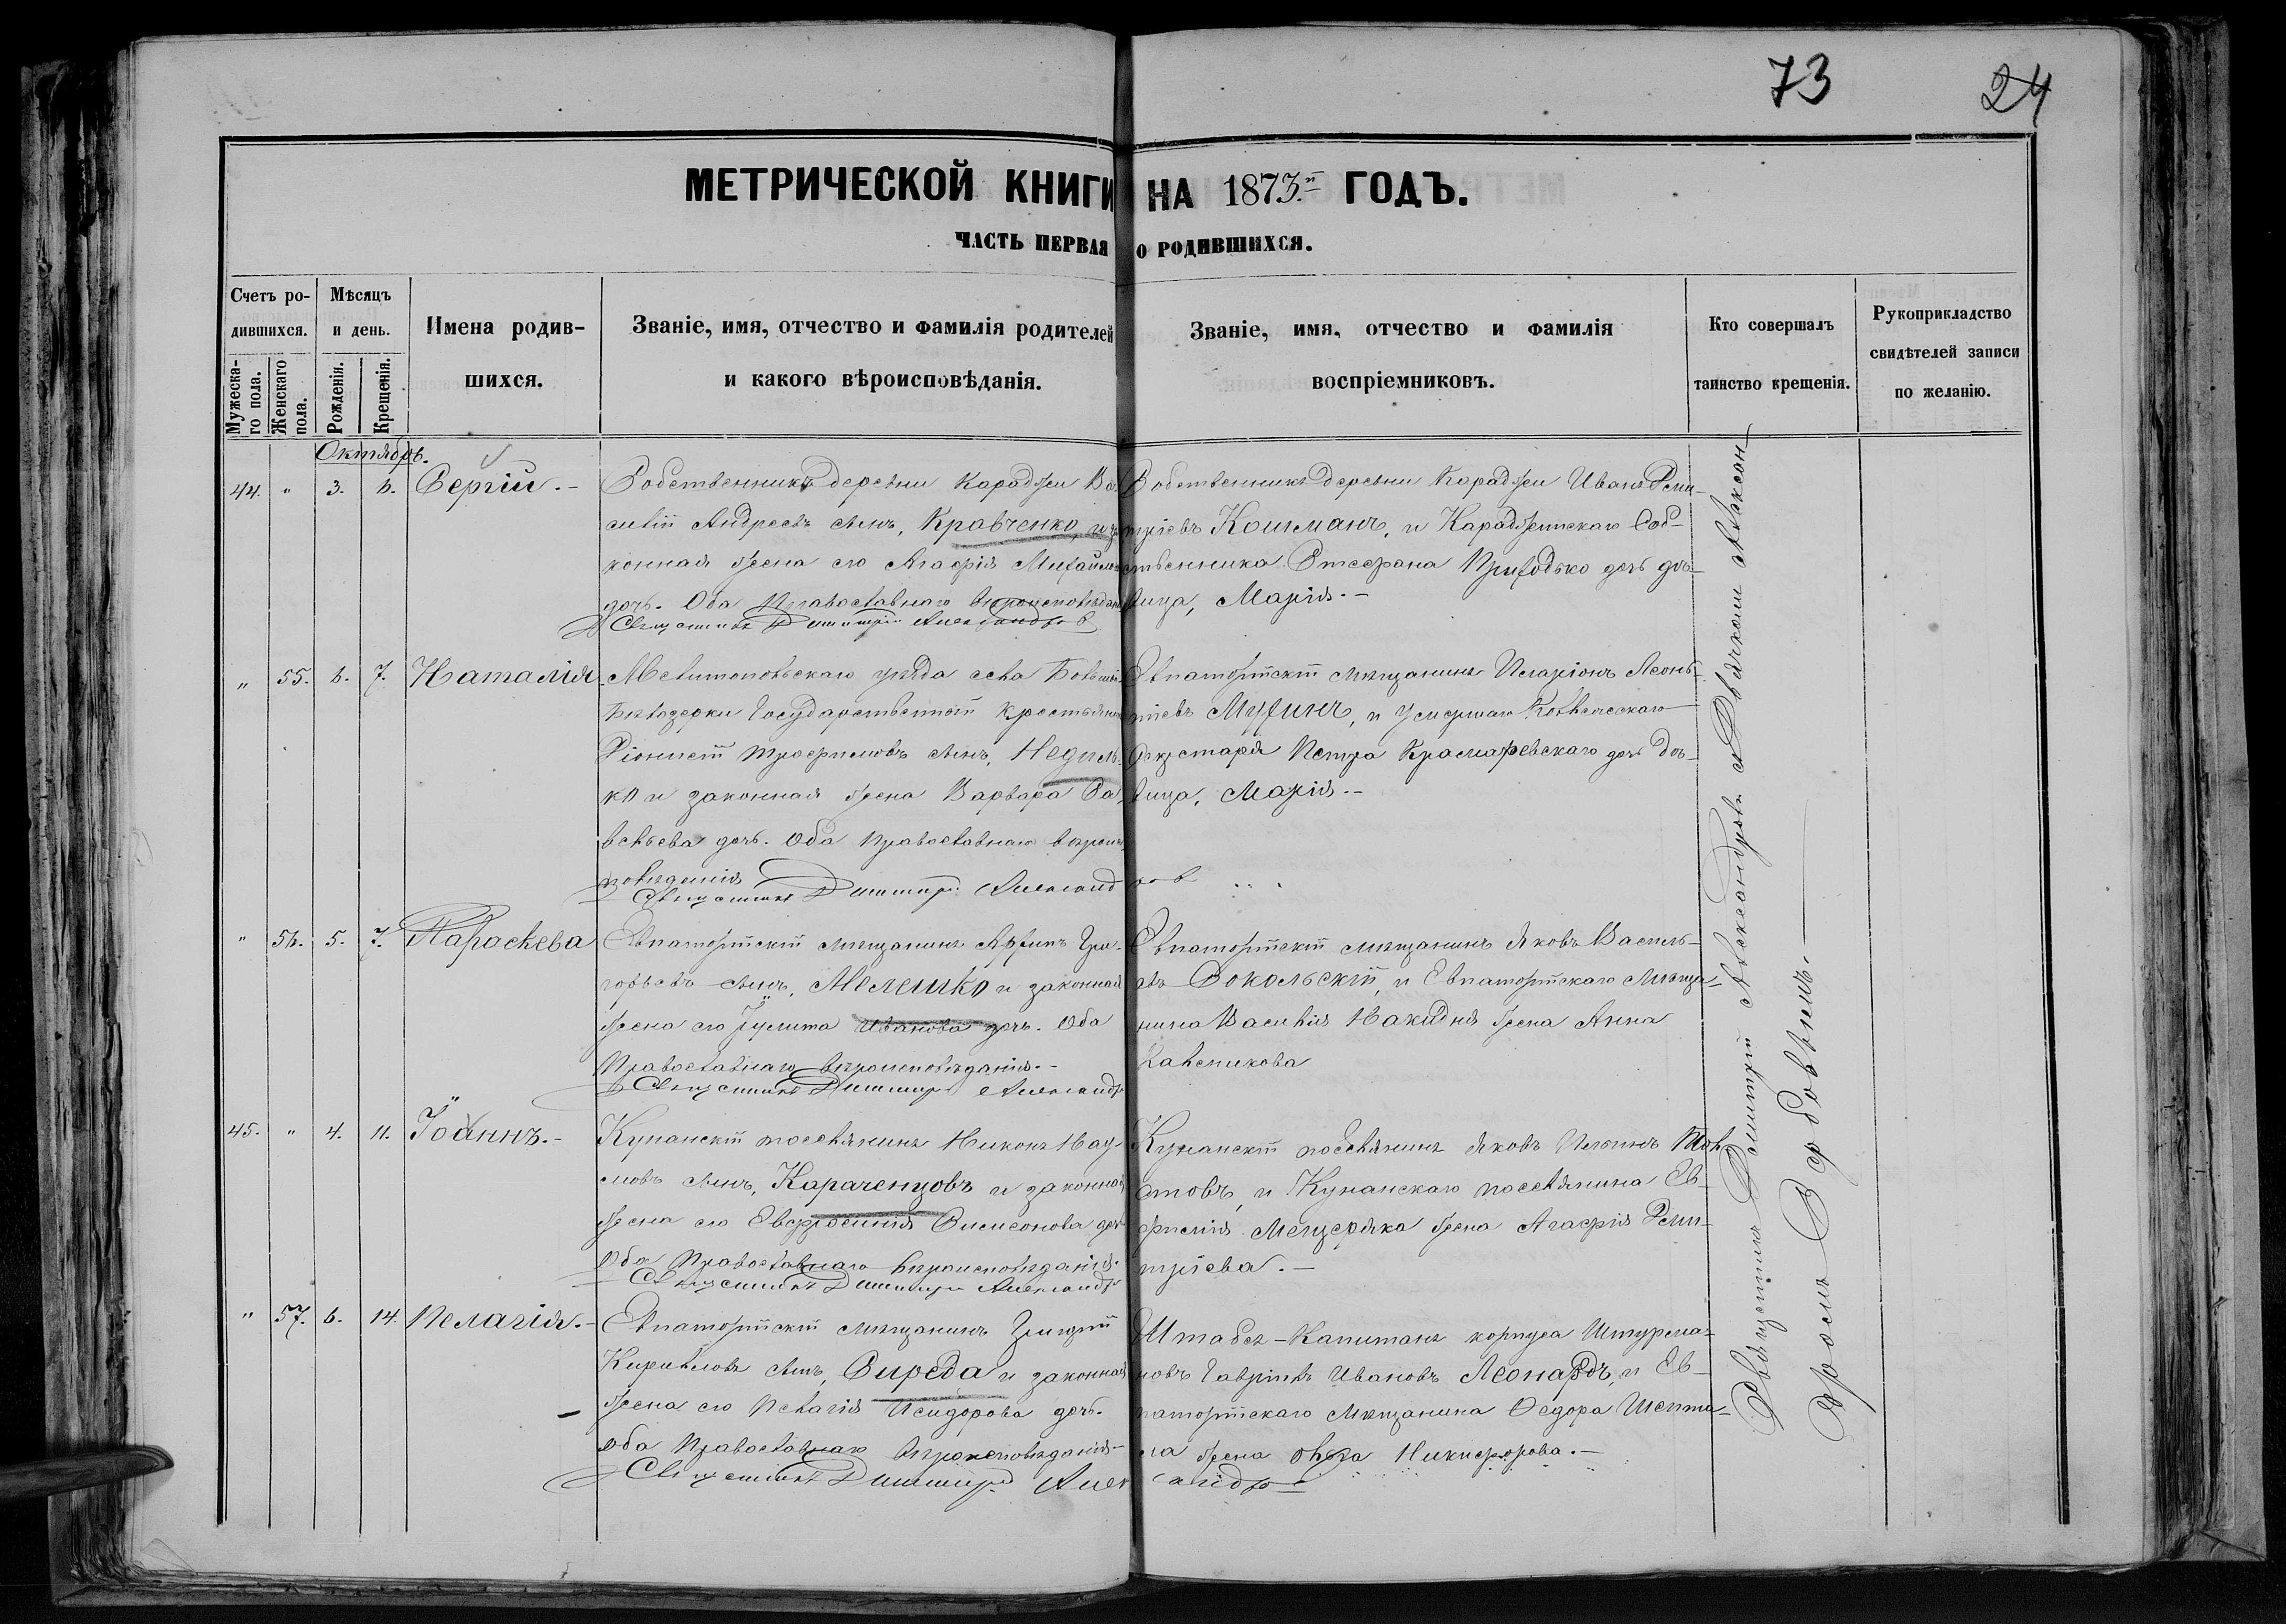 73 24
МЕТРИЧЕСКОЙ КНИГИ НА 1873й ГОДЪ.
ЧАСТЬ ПЕРВАЯ О РОДИВШИХСЯ.
Счетъ ро-
дившихся.
Мужеска-
го пола.
Женскаго
пола.
Мѣсяцъ
и день.
Рожденія.
Крещенія.
Имена родив-
шихся.
Званіе, имя, отчество и фамилія родителей
и какого вѣроисповѣданія.
Званіе, имя, отчество и фамилія
воспріемниковъ.
Кто совершалъ
таинство крещенія.
Рукоприкладство
свидѣтелей записи
по желанію.
Октябрь.
44. " 3. 6. Сергій.-
Собственникъ деревни Караджи Ва-
силій Андреевъ сынъ, Кравченко, и за-
конная жена его Агафія Михайлова
дочь. Оба Православнаго вѣроисповѣданія
Священникъ Димитрій Александровъ
Собственникъ деревни Караджи Иванъ Дми-
тріевъ Кошманъ, и Караджинскаго Соб-
ственника Стефана Приходько дочь дѣ-
вица, Марія.-
" 55. 6. 7. Наталія.
Мелитопольскаго уѣзда села Большой
Бѣлозерки Государственный крестьянинъ
Діонисій Трофимовъ сынъ, Недиль-
ко и законная жена Варвара Са-
вельева дочь. Оба Православнаго вѣроис-
повѣданія
Священникъ Димитрій Александровъ
Евпаторійскій мѣщанинъ Иларіонъ Леонь-
тіевъ Мухинъ, и умершаго
Петра Крамаревскаго дочь дѣ-
вица, Марія.-
" 56. 5. 7. Параскева
Евпаторійскій мѣщанинъ Архипъ Гри-
горьевъ сынъ, Мелешко и законная
жена его Іулита Иванова дочь. Оба
Православнаго вѣроисповѣданія.-
Священникъ Димитрій Александр
Евпаторійскій мѣщанинъ Яковъ Василь-
евъ Сокольскій, и Евпаторійскаго Мѣща-
нина Василія Накидня жена Анна
45. " 4. 11. Іоаннъ.-
Кунанскій поселянинъ Никонъ Нау-
мовъ сынъ, Караченцовъ и законная
жена его Евфросинія Симеонова дочь
Оба Православнаго вѣроисповѣданія.
Священникъ Димитрій Александр
Кунанскій поселянинъ Яковъ Ильинъ Тол-
матовъ, и Кунанскаго поселянина Ев-
фимія Мещеряка жена Агафія Дми-
тріева.-
" 57. 6. 14. Пелагія.-
Евпаторійскій мѣщанинъ Григорій
Кирилловъ сынъ, Сиреда и законная
жена его Пелагія Исидорова дочь.
Оба Православнаго вѣроисповѣданія-
Священникъ Димитрій Александр
Штабсъ-Капитанъ корпуса Штурма-
новъ Гавріилъ Ивановъ Леонардъ, и Ев-
паторійскаго Мѣщанина Ѳедора Шепта-
ла жена Ольга Никифорова.-
Священникъ Димитрій Александровъ съ Дьячкомъ